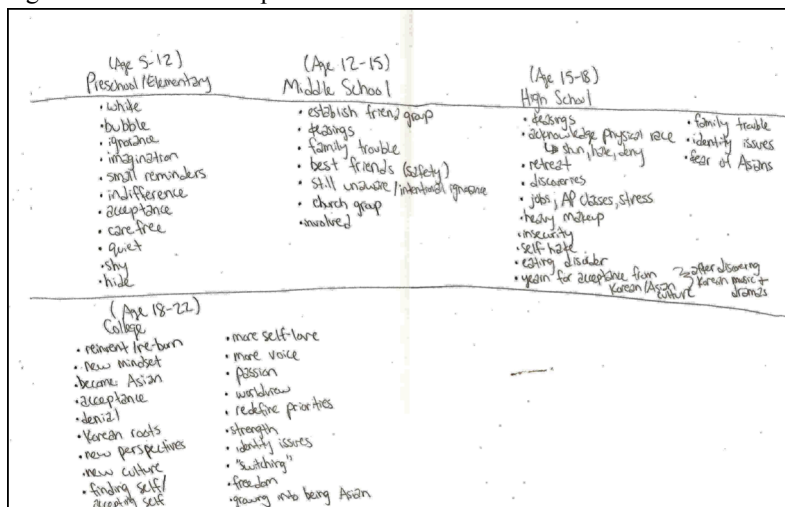 (Age 5-12)
Preschool/Elementary
• white
• bubble
• ignorance
• imagination
• small reminders
• indifference
• acceptance
• care-free
• quiet
• shy
• hide
(Age 12-15)
Middle School
• establish friend group
• teasings
• family trouble
• best friends (safety)
• still unaware/intentional ignorance
• church group
• involved
(Age 15-18)
High School
• teasings
• acknowledge physical race
↳ shun, hate, deny
• retreat
• discoveries
• jobs, AP classes, stress
• heavy makeup
• insecurity
• self hate
• eating disorder
• yearn for acceptance from
Korean/Asian
culture
after discovering
Korean music +
dramas
• family trouble
• identity issues
• fear of Asians
(Age 18-22)
College
• reinvent/re-born
• new mindset
• become Asian
• acceptance
• denial
• Korean roots
• new perspectives
• new culture
• finding self/
accepting self
• more self-love
• more voice
• passion
• worldview
• redefine priorities
• strength
• identity issues
• "switching"
• freedom
• growing into being Asian